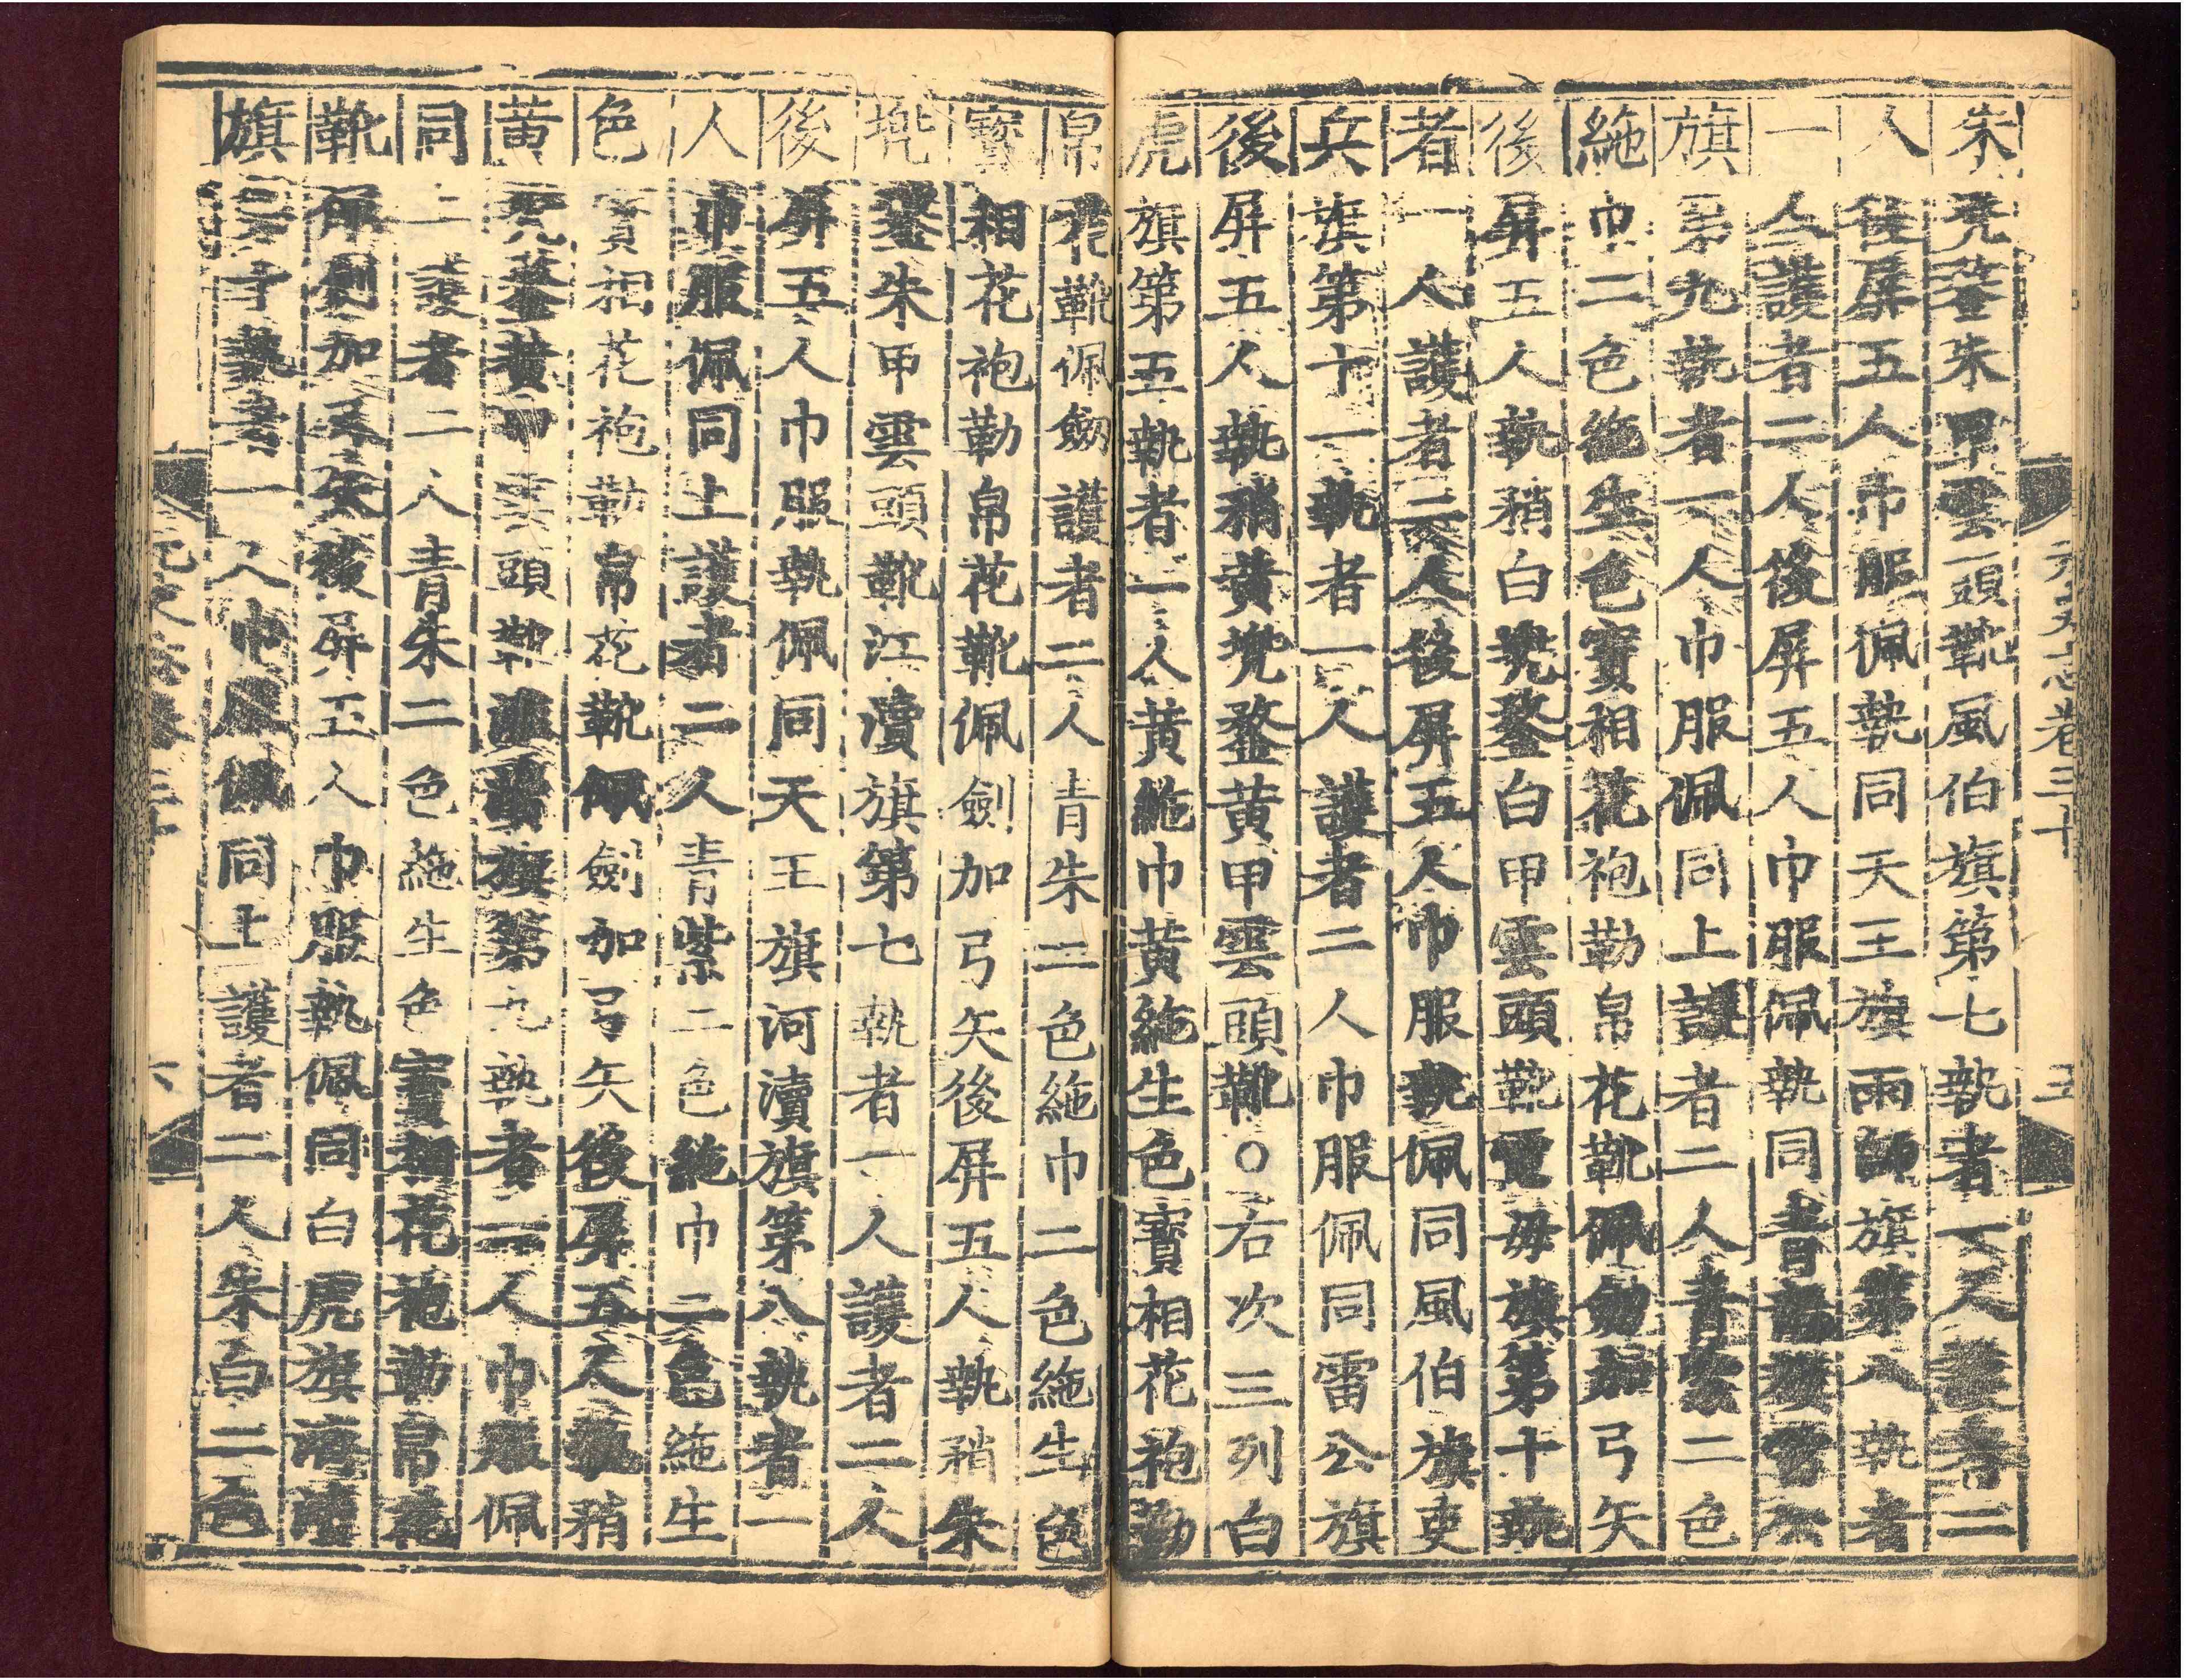 元史志卷三十 五
朱兜鍪朱甲雲頭靴風伯旗第七執者一人護者二
人後屏五人巾服佩執同天王旗雨師旗第八執者
一人護者二人後屏五人巾服佩執同青龍旗雷公
旗第九執者一人巾服佩同上護者二人青紫二色
絁巾二色絁生色寶相花袍勒帛花靴佩劍加弓矢
後屏五人執矟白兜鍪白甲雲頭靴電母旗第十執
者一人護者二人後屏五人巾服執佩同風伯旗吏
兵旗第十一執者一人護者二人巾服佩同雷公旗
後屏五人執矟黃兜鍪黃甲雲頭靴○右次三列白
虎旗第五執者一人黃絁巾黃絁生色寶相花袍勒
帛花靴佩劍護者二人青朱二色絁巾二色絁生色
寶相花袍勒帛花靴佩劍加弓矢後屏五人執矟朱
兜鍪朱甲雲頭靴江瀆旗第七執者一人護者二人
後屏五人巾服執佩同天王旗河瀆旗第八執者一
人巾服佩同上護者二人青紫二色絁巾二色絁生
色寶相花袍勒帛花靴佩劍加弓矢後屏五人執矟
黃兜鍪黃甲雲頭靴淮瀆旗第九執者一人巾服佩
同上護者二人青朱二色絁生色寶相花袍勒帛花
靴佩劍加弓矢後屏五人巾服執佩同白虎旗濟瀆
旗第十執者一人巾服佩同上護者二人朱白二色
元史志卷三十 六